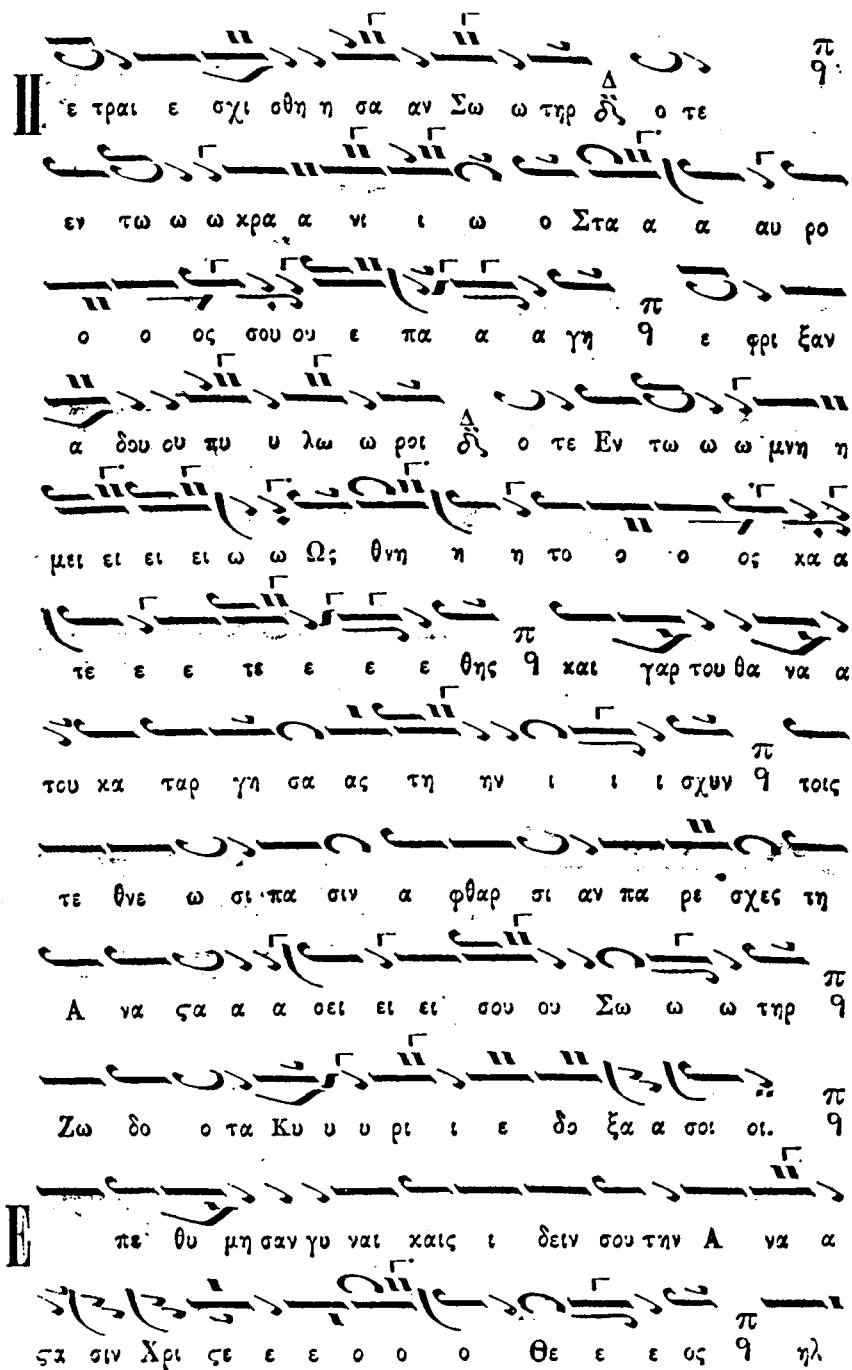 Π ε τραι ε σχι σθη η σα αν Σω ω τηρ Δ ο τε π q
εν τω ω ω κρα α νι ι ω ο Στα α α αυ ρο
ο ο ος σου ου ε πα α α γη π q ε φρι ξαν
α δου ου πυ υ λω ω ροι Δ ο τε Εν τω ω ω μνη η
μει ει ει ει ω ω Ως θνη η η το ο ο ος κα α
τε ε ε τε ε ε ε θης π q και γαρ του θα να α
του κα ταρ γη σα ας τη ην ι ι ι σχυν π q τοις
τε θνε ω σι πα σιν α φθαρ σι αν πα ρε σχες τη
Α να ϛα α α σει ει ει σου ου Σω ω ω τηρ π q
Ζω δο ο τα Κυ υ υ ρι ι ε δο ξα α σοι οι. π q
Ε πε θυ μη σαν γυ ναι καις ι δειν σου την Α να α
ϛα σιν Χρι ϛε ε ε ο ο ο Θε ε ε ος π q ηλ